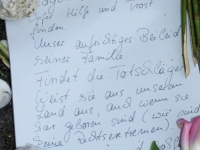 für Hilfe und Trost
finden.
Unser aufrichtiges Beileid
seiner Familie
Findet die Totschläger
Weist sie aus unserem
Land aus, auch wenn sie
hier geboren sind (wir sind
keine Rechtsextremen).